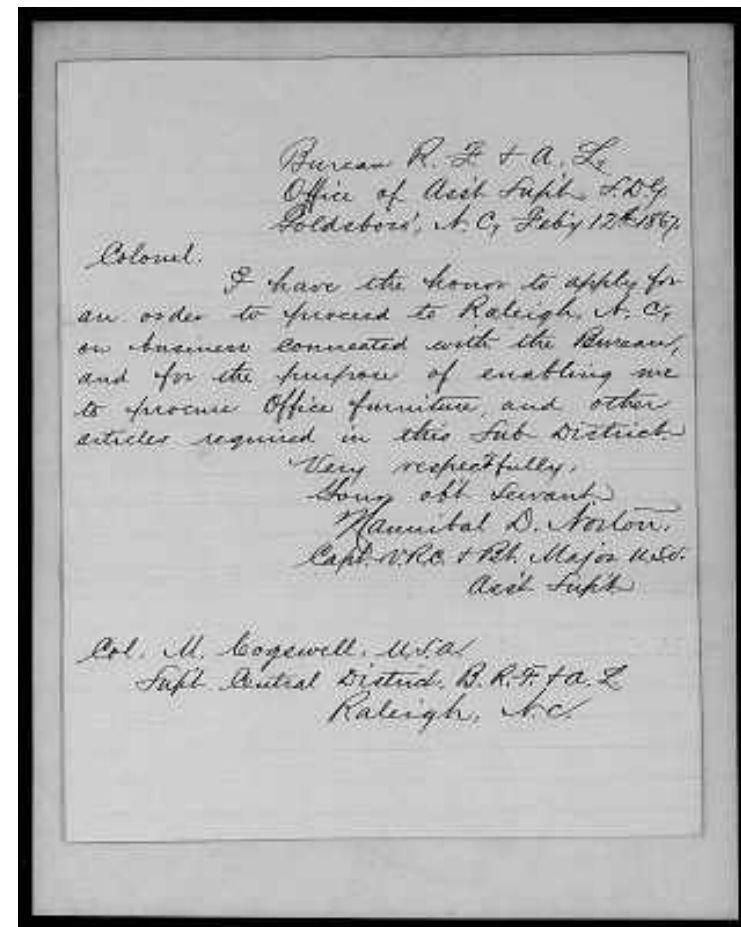 Bureau R. F. & A. L,
Office of Ass't Sup't, S.D.G.
Goldsboro', N. C, Feb'y 12th 1867.
Colonel.
I have the honor to apply for
an order to proceed to Raleigh, N. C,
on business connected with the Bureau,
and for the purpose of enabling me
to procure Office furniture, and other
articles required in this Sub District.
Very respectfully,
Your obt Servant
Hannibal D. Norton.
Capt. V.R.C. & Bt. Major U.S.V.
Ass't Sup't
Col. M. Cogswell. U.S.A.
Sup't Central District. B. R. F. & A. L
Raleigh, N.C.